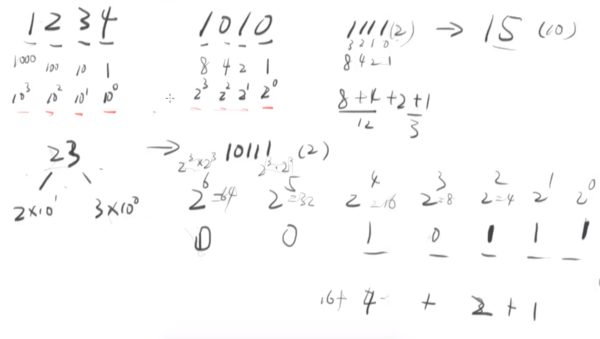 1 2 3 4
1000 100 10 1
10³ 10² 10¹ 10⁰
1 0 1 0
8 4 2 1
2³ 2² 2¹ 2⁰
1111(2) → 15 (10)
3 2 1 0
8 4 2 1
8+4+2+1
12 3
23 → 10111 (2)
2×10¹ 3×10⁰
2³×2³
2⁶=64 2⁵=32 2⁴=16 2³=8 2²=4 2¹ 2⁰
0 0 1 0 1 1 1
16+ 4 + 2 + 1